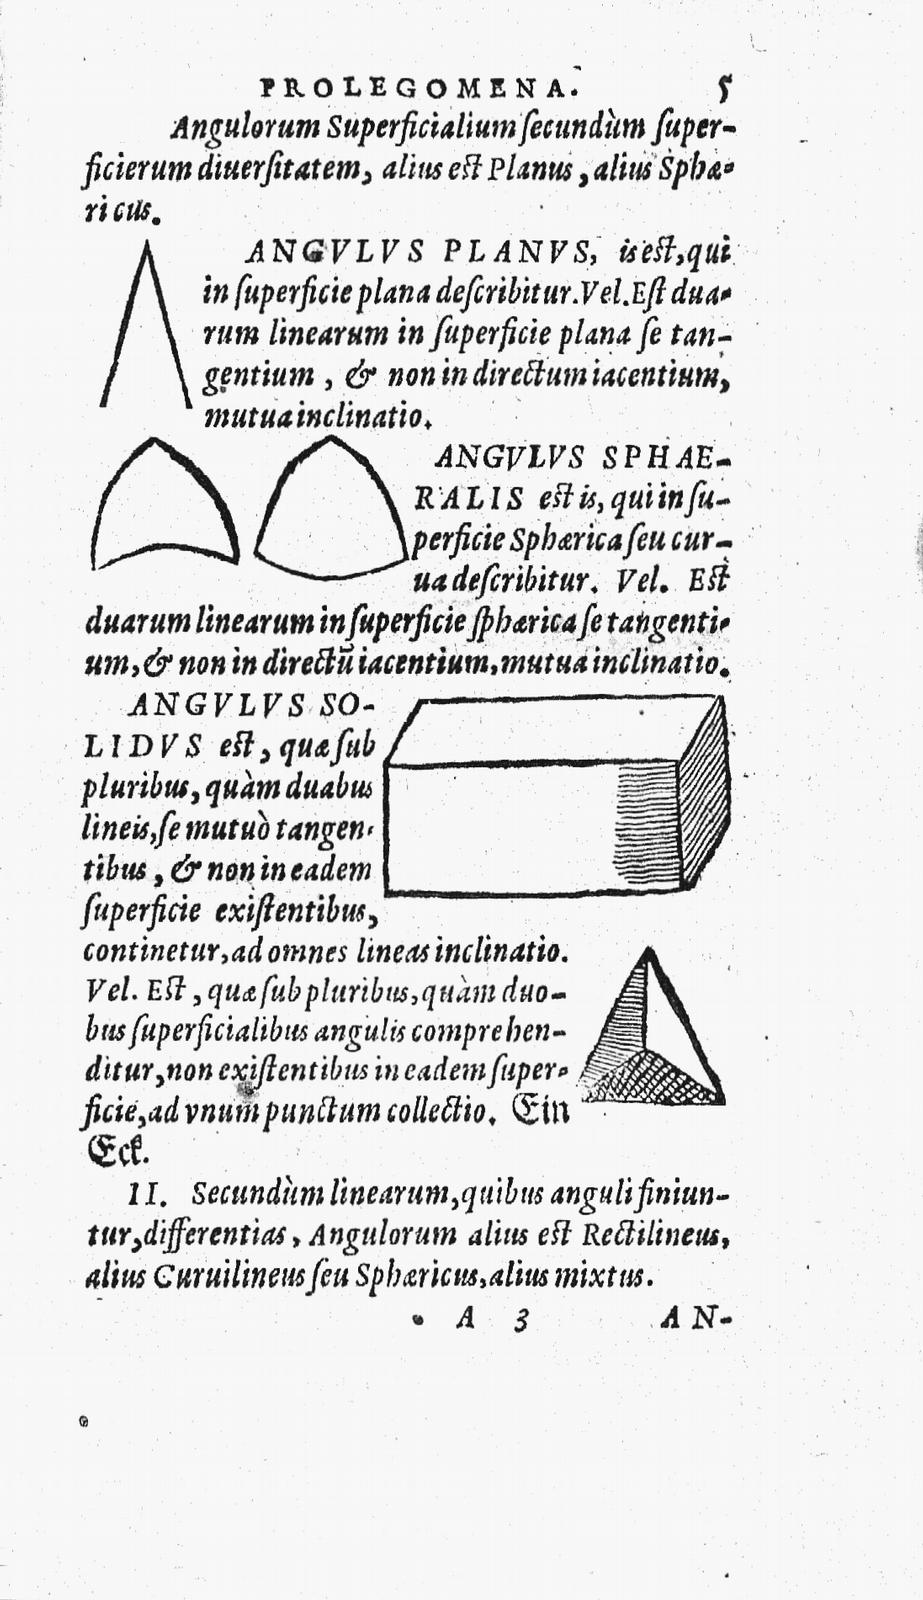 PROLEGOMENA. 5
Angulorum Superficialium ſecundùm ſuper-
ficierum diuerſitatem, alius eſt Planus, alius Sphæ-
ricus.
ANGVLVS PLANVS, is eſt, qui
in ſuperficie plana deſcribitur. Vel. Eſt dua-
rum linearum in ſuperficie plana ſe tan-
gentium, & non in directum iacentium,
mutua inclinatio.
ANGVLVS SPHAE-
RALIS eſt is, qui in ſu-
perficie Sphærica ſeu cur-
ua deſcribitur. Vel. Eſt
duarum linearum in ſuperficie ſphærica ſe tangenti-
um, & non in directū iacentium, mutua inclinatio.
ANGVLVS SO-
LIDVS eſt, quæ ſub
pluribus, quàm duabus
lineis, ſe mutuò tangen-
tibus, & non in eadem
ſuperficie exiſtentibus,
continetur, ad omnes lineas inclinatio.
Vel. Eſt, quæ ſub pluribus, quàm duo-
bus ſuperficialibus angulis comprehen-
ditur, non exiſtentibus in eadem ſuper-
ficie, ad vnum punctum collectio. Ein
Eck.
II. Secundùm linearum, quibus anguli finiun-
tur, differentias, Angulorum alius eſt Rectilineus,
alius Curuilineus ſeu Sphæricus, alius mixtus.
A 3 AN-